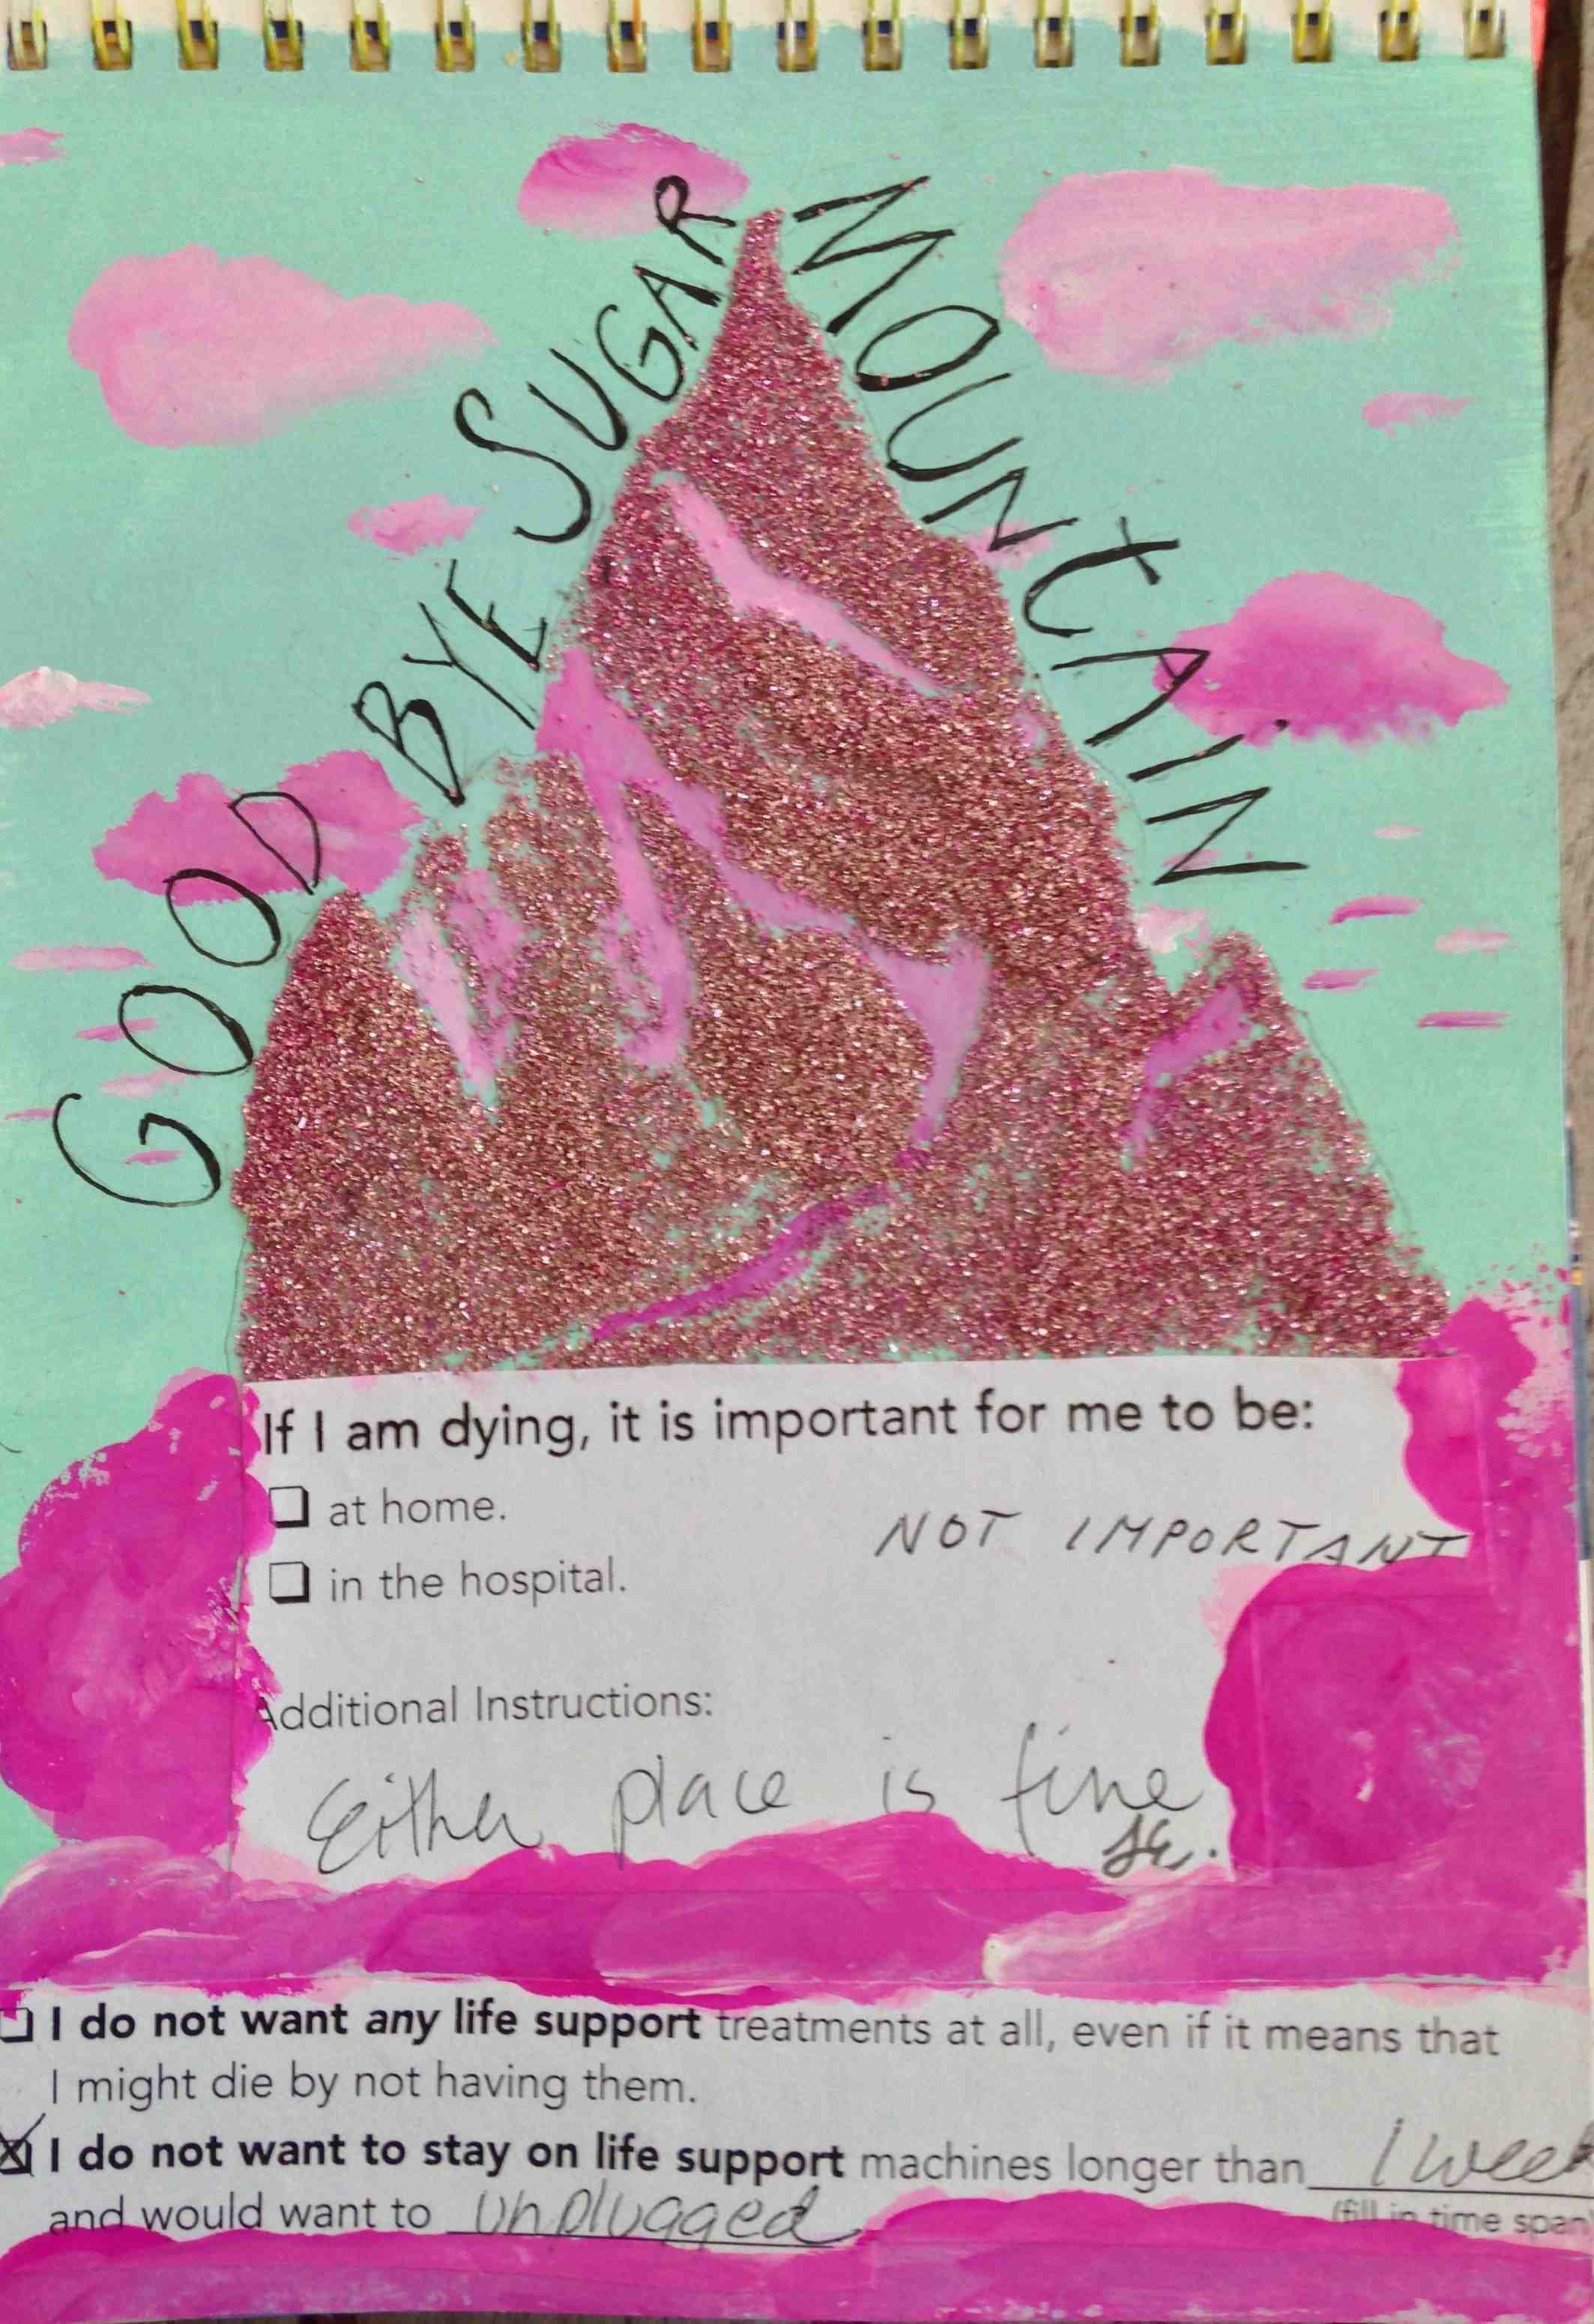 GOOD BYE SUGAR MOUNTAIN
If I am dying, it is important for me to be:
at home.
NOT IMPORTANT
in the hospital.
Additional Instructions:
Either place is fine
I do not want any life support treatments at all, even if it means that
I might die by not having them.
I do not want to stay on life support machines longer than 1 week
and would want to unplugged
(fill in time span